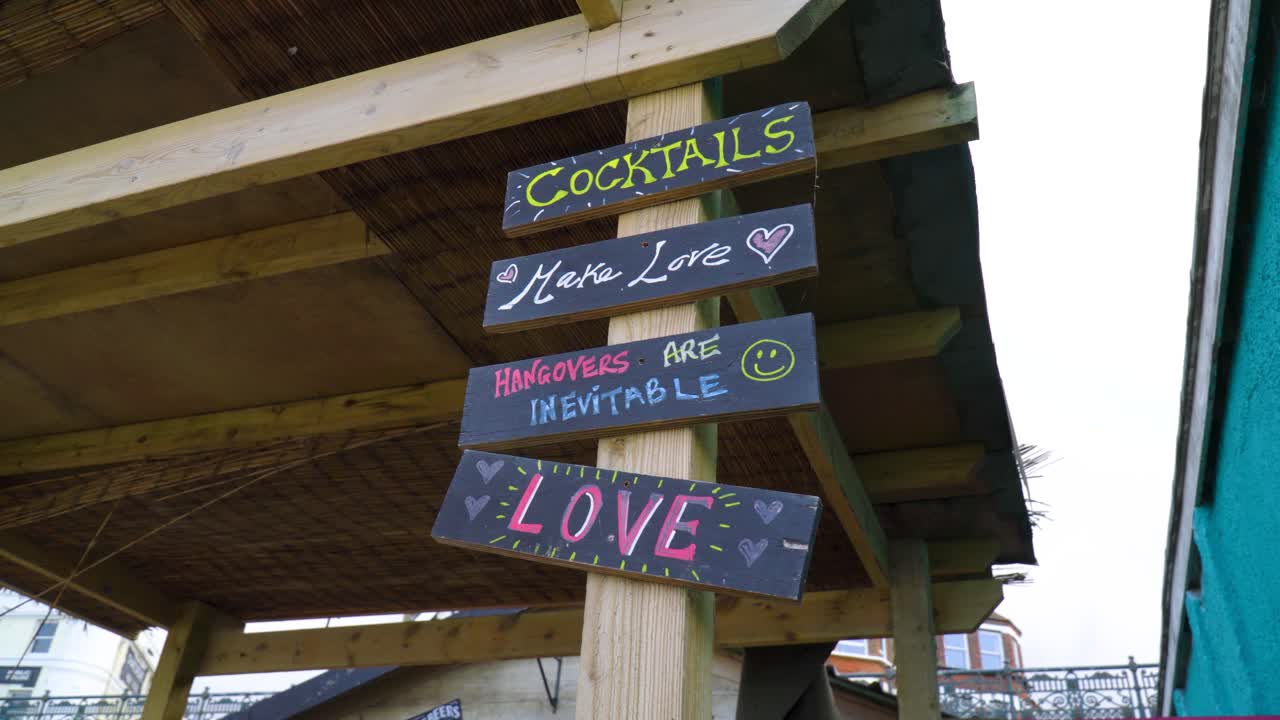 COCKTAILS
Make Love
HANGOVERS ARE
INEVITABLE
LOVE
BEERS